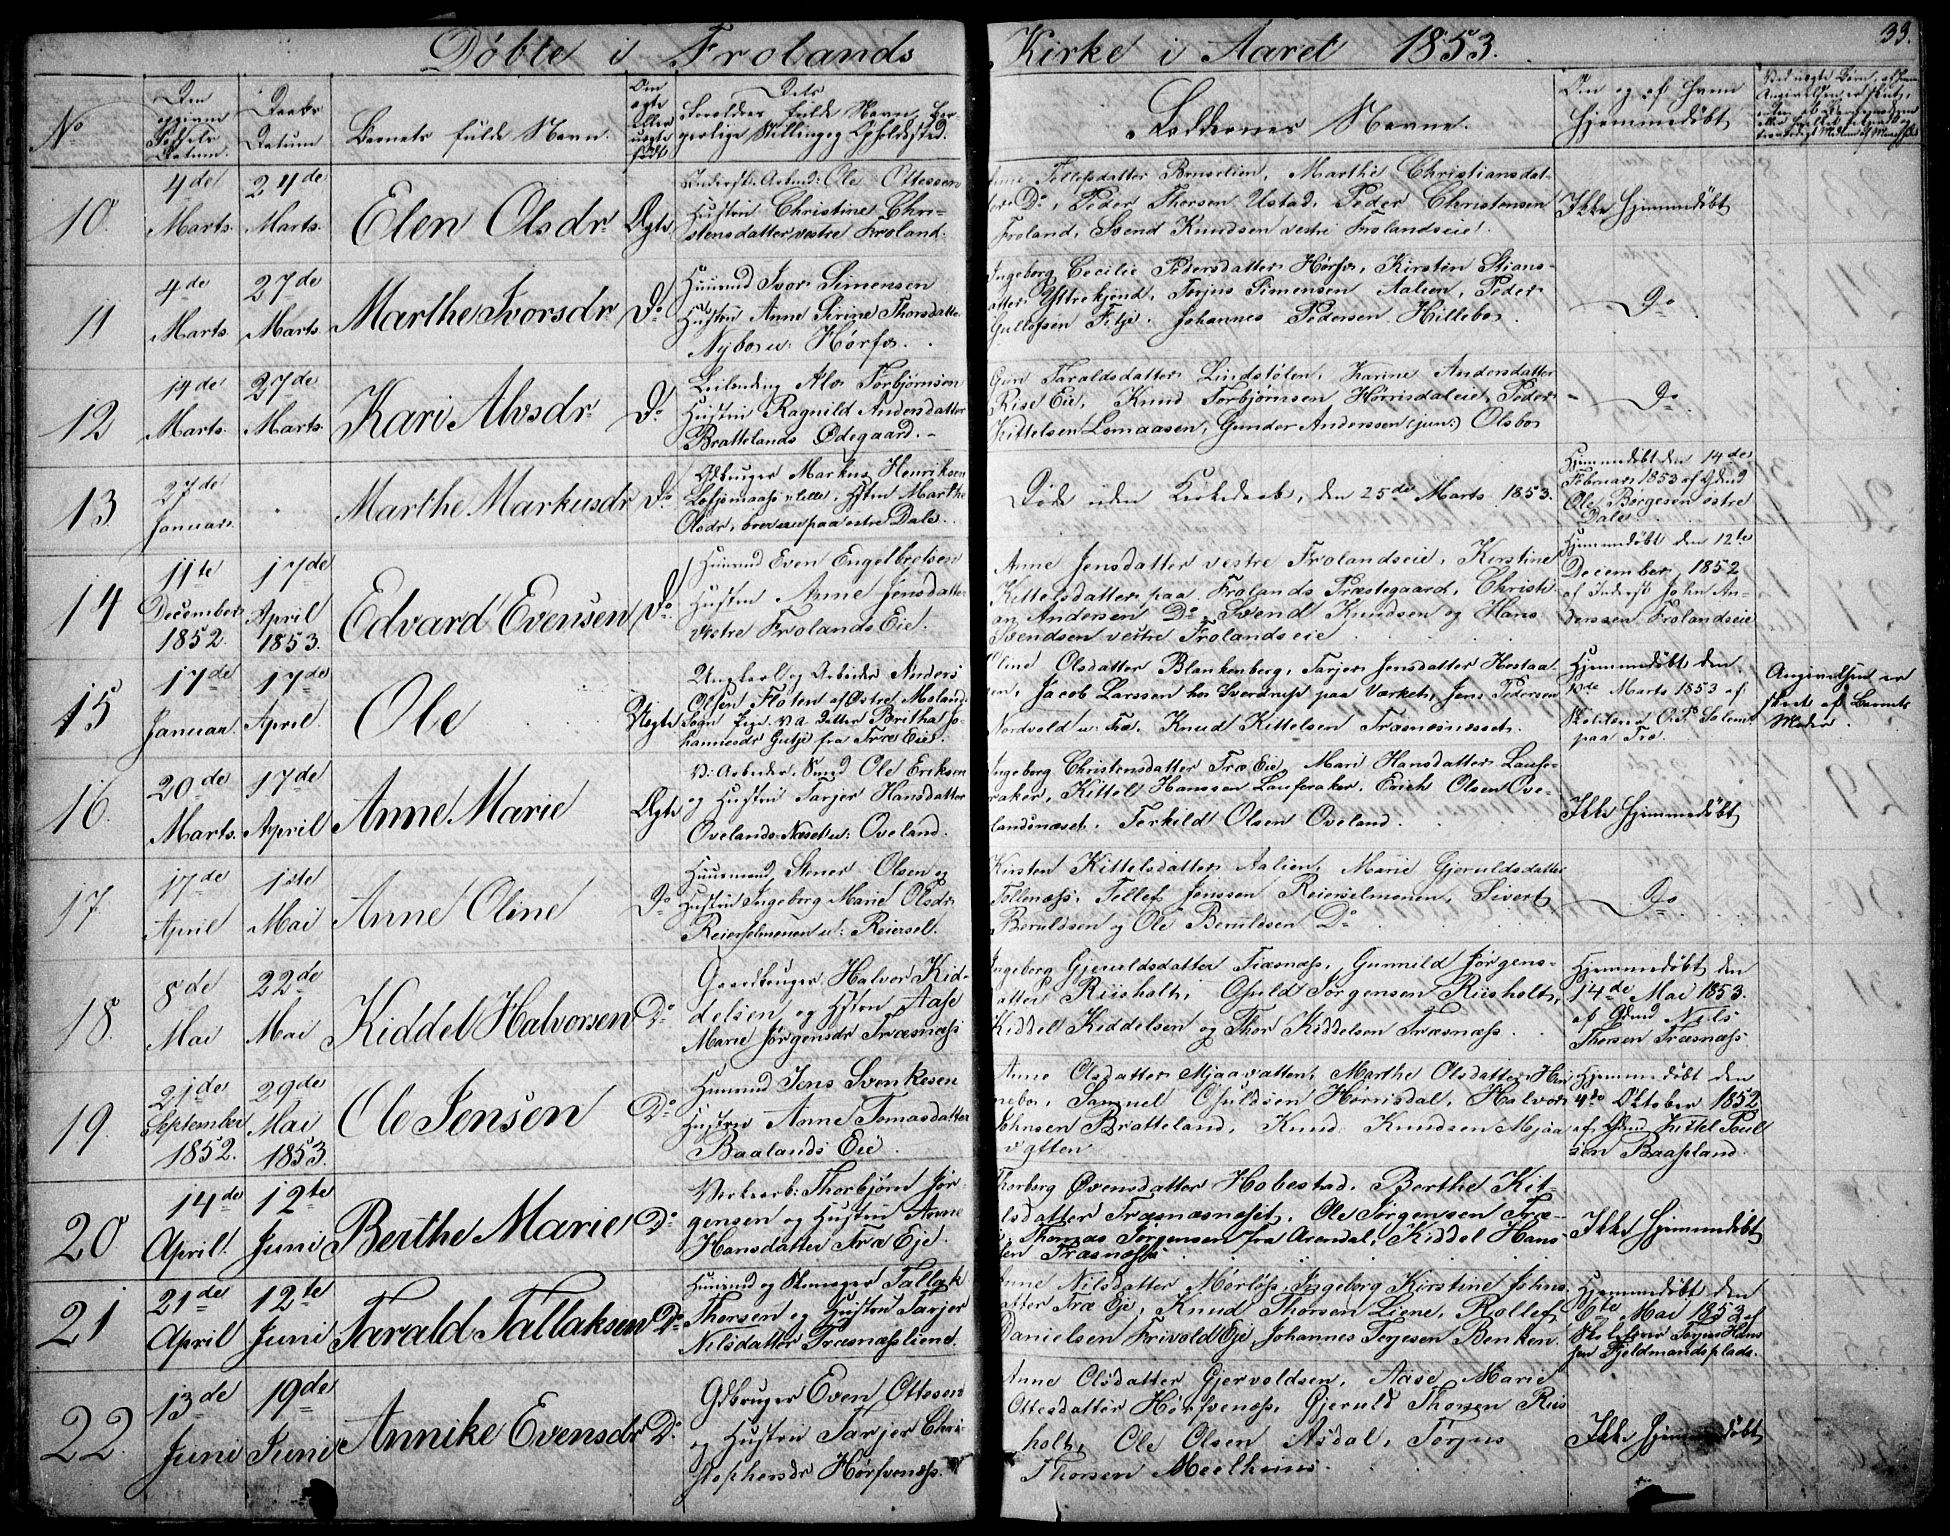 Døbte i Frolands Kirke i Aaret 1853.
33.
No
Den opgivne Fødsels Datum.
Daabs Datum
Barnets fulde Navn.
Om ægte eller uægte født
Forældres fulde Navn, Borgerlige Stilling og Opholdssted.
Faddernes Navne.
Om og af hvem hjemmedøbt
10.
4de Marts.
24de Marts.
Elen Olsdr
Ægte
Ole Ottessen
Hustru Christine Chri-
stensdatter vestre Froland.
Tellefsdatter Bruselien, Marthe Christiansdat-
ter Do, Peder Thorsen Ustad, Peder Christensen
Froland, Svend Knudsen vestre Frolandseie.
Ikke hjemmedøbt
11
4de Marts.
27de Marts
Marthe Ivorsdr
Do
Huusmd Ivor Simensen
Hustru Anne Sirine Thorsdatter
Nyboe u: Hørfos.
Ingeborg Cecilie Pedersdatter Hørfos, Kirsten Stians-
atter Yttrekjend, Torjus Simensen Aalien, Peder
Gullofsen Fitje, Johannes Pedersen Hillebo.
Do
12
14de Marts.
27de Marts.
Kari Alvsdr
Do
Leilending Alv Torbjørnsen
Hustru Ragnild Andersdatter
Brattelands Ødegaard.
Gun Taraldsdatter Lindstølen, Karine Andersdatter
Rise Eie, Knud Torbjørnsen Hørrisdaleie, Peder
Kittelsen Lomaasen, Gunder Anderssen (jun:) Olsbo
Do
13
27de Januar.
Marthe Markusdr
Do
Gdbruger Markus Henriksen
Marthe
Olsdr, boende paa østre Dale.
Døde uden Kirkedaab, den 25de Marts 1853.
Hjemmedøbt den 14de
Februar 1853 af Gdmd
Ole Børgesen østre
Dale
14
11te December 1852.
17de April 1853.
Edvard Evensen
Do
Huusmd Even Engelbretsen
Hustru Anne Jensdatter
vestre Frolands Eie.
Anne Jensdatter vestre Frolandseie, Kirstine
Kittelsdatter paa Frolands Præstegaard, Christi-
an Andersen Do, Svend Knudsen og Hans
Svendsen vestre Frolandseie
Hjemmedøbt den 12te
December 1852
af Inderst John An-
derssen Frolandseie
15
17de Januar.
17de April.
Ole
Uægte
Ungkarl og Arbeider Anders
Olsen Floten af Østre Moland
Sogn Pige Datter Britha Jo-
hannesdr Gutje fra Træ Eie.
Oline Olsdatter Blankenberg, Tarjer Jensdatter Hestaa-
en, Jacob Larssen hos Sverdrup paa Værket, Jens Pedersen
Nordvold u: Træ, Knud Kittelsen Træsnæsnæsset.
Hjemmedøbt den
Marts 1853 af
Skolelærer
paa Træ.
Angivelsen er
skeet af Barnets
Moder
16.
20de Marts.
17de April
Anne Marie
Ægte
V: Arbeider, Smed Ole Eriksen
og Hustru Tarjer Hansdatter
Ovelands Næset u: Oveland.
Ingeborg Christensdatter Træ Eie, Mari Hansdatter Lauve-
raker, Kittel Hanssen Lauveraker, Erich Olsen Ove-
landsnæset, Terkild Olsen Oveland.
Ikke hjemmedøbt
17.
17de April
1ste Mai
Anne Oline
Do
Huusmand Stener Olsen og
Hustru Ingeborg Marie Olsdr
Reierselmoenen u: Reiersel.
Kirsten Kittelsdatter Aalien, Marie Gjeruldsdatter
Follenæss, Tellef Jenssen Reierselmoenen, Sivert
Beruldsen og Ole Beruldsen Do
Do
18.
8de Mai
22de Mai
Kiddel Halvorsen
Do
Gaardbruger Halvor Kid-
delsen og Hstru Aase
Marie Jørgensdr Træsnæss
Ingeborg Gjeruldsdatter Træsnæss, Gunnild Jørgens-
datter Riisholt, Osuld Jørgensen Riisholt,
Kiddel Kiddelsen og Thor Kiddelsen Træsnæss.
Hjemmedøbt den
14de Mai 1853.
af Gdmd Nils
Thorsen Træsnæss.
19.
21de September 1852.
29de Mai 1853.
Ole Jensen
Do
Huusmd Jens Svenkesen
Hustru Anne Tomasdatter
Baalands Eie.
Anne Olsdatter Mjaavatten, Marthe Olsdatter
nebo, Samuel Osuldsen Hørrisdal, Halvor
Johnsen Bratteland, Knud Knudsen Mjaa-
vatten
Hjemmedøbt den
4de Oktober 1852
af Gdmd Kittel Poul-
sen Baaseland.
20
14de April.
12te Juni
Berthe Marie
Do
Værksarb: Thorbjørn Jør-
gensen og Hustru Anne
Hansdatter Træ Eje.
Thorborg Øvensdatter Hobestad, Berthe Kit-
lsdatter Træsnæsnæset, Ole Jørgensen Træ-
, Thomas Jørgensen fra Arendal, Kiddel Hans-
sen Træsnæss
Ikke hjemmedøbt
21
21de April
12te Juni
Tarald Tallaksen
Do
Huusmd og Skomager Tallak
Thorsen og Hustru Tarjer
Nilsdatter Træsnæssliene.
Anne Nilsdatter Mørløs, Ingeborg Kirstine Johns-
datter Træ Eje, Knud Thorsen Liene, Rollef
Danielsen Frivold Eje, Johannes Terjesen Benken.
Hjemmedøbt den
6te Mai 1853 af
Skolelærer Torjus Hans-
sen Fjeldmandsplads.
22.
13de Juni
19de Juni
Annike Evensdr
Do
Gdbruger Even Ottesen
og Hustru Tarjer Chri-
stophersdr Hørfvenæss.
Anne Olsdatter Gjervoldsøen, Aase Marie
Ottesdatter Hørfvenæss, Gjeruld Thorsen Riis-
holt, Ole Olsen Aasdal, Torjus
Thorsen
Ikke hjemmedøbt